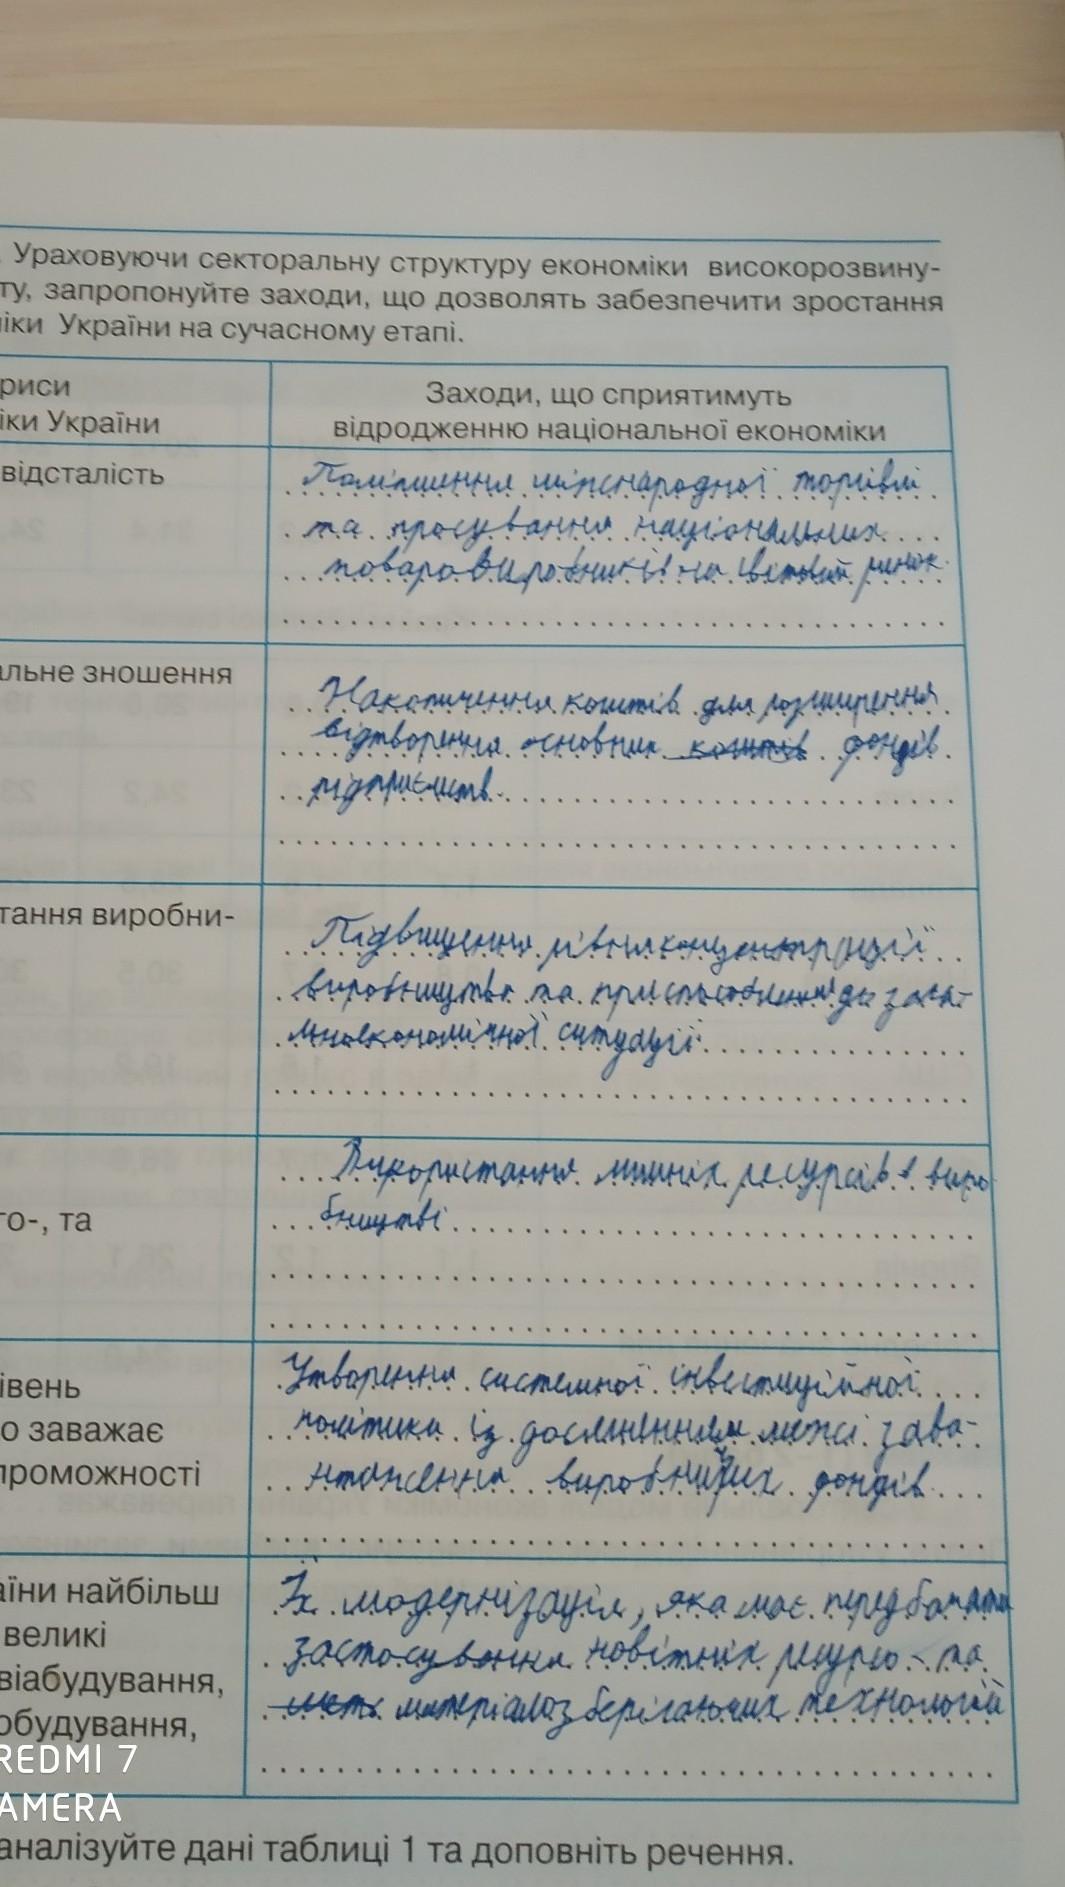 . Ураховуючи секторальну структуру економіки високорозвину-
ту, запропонуйте заходи, що дозволять забезпечити зростання
іки України на сучасному етапі.
риси
іки України
Заходи, що сприятимуть
відродженню національної економіки
відсталість
Поліпшення міжнародної торгівлі
та просування національних
товаровиробників на світовий ринок
альне зношення
Накопичення коштів для розширення
відтворення основних коштів фондів
підприємств
тання виробни-
Підвищення рівня концентрації
виробництва та до
економічної ситуації
го-, та
Використання ресурсів в виро
бництві
івень
о заважає
проможності
Утворення системної інвестиційної
політики із досягненням межі зава-
нтаження виробничих фондів
аїни найбільш
великі
віабудування,
обудування,
Їх модернізація, яка має передбачати
застосування новітніх ресурсо- та
матеріалозберігаючих технологій
REDMI 7
AMERA
аналізуйте дані таблиці 1 та доповніть речення.